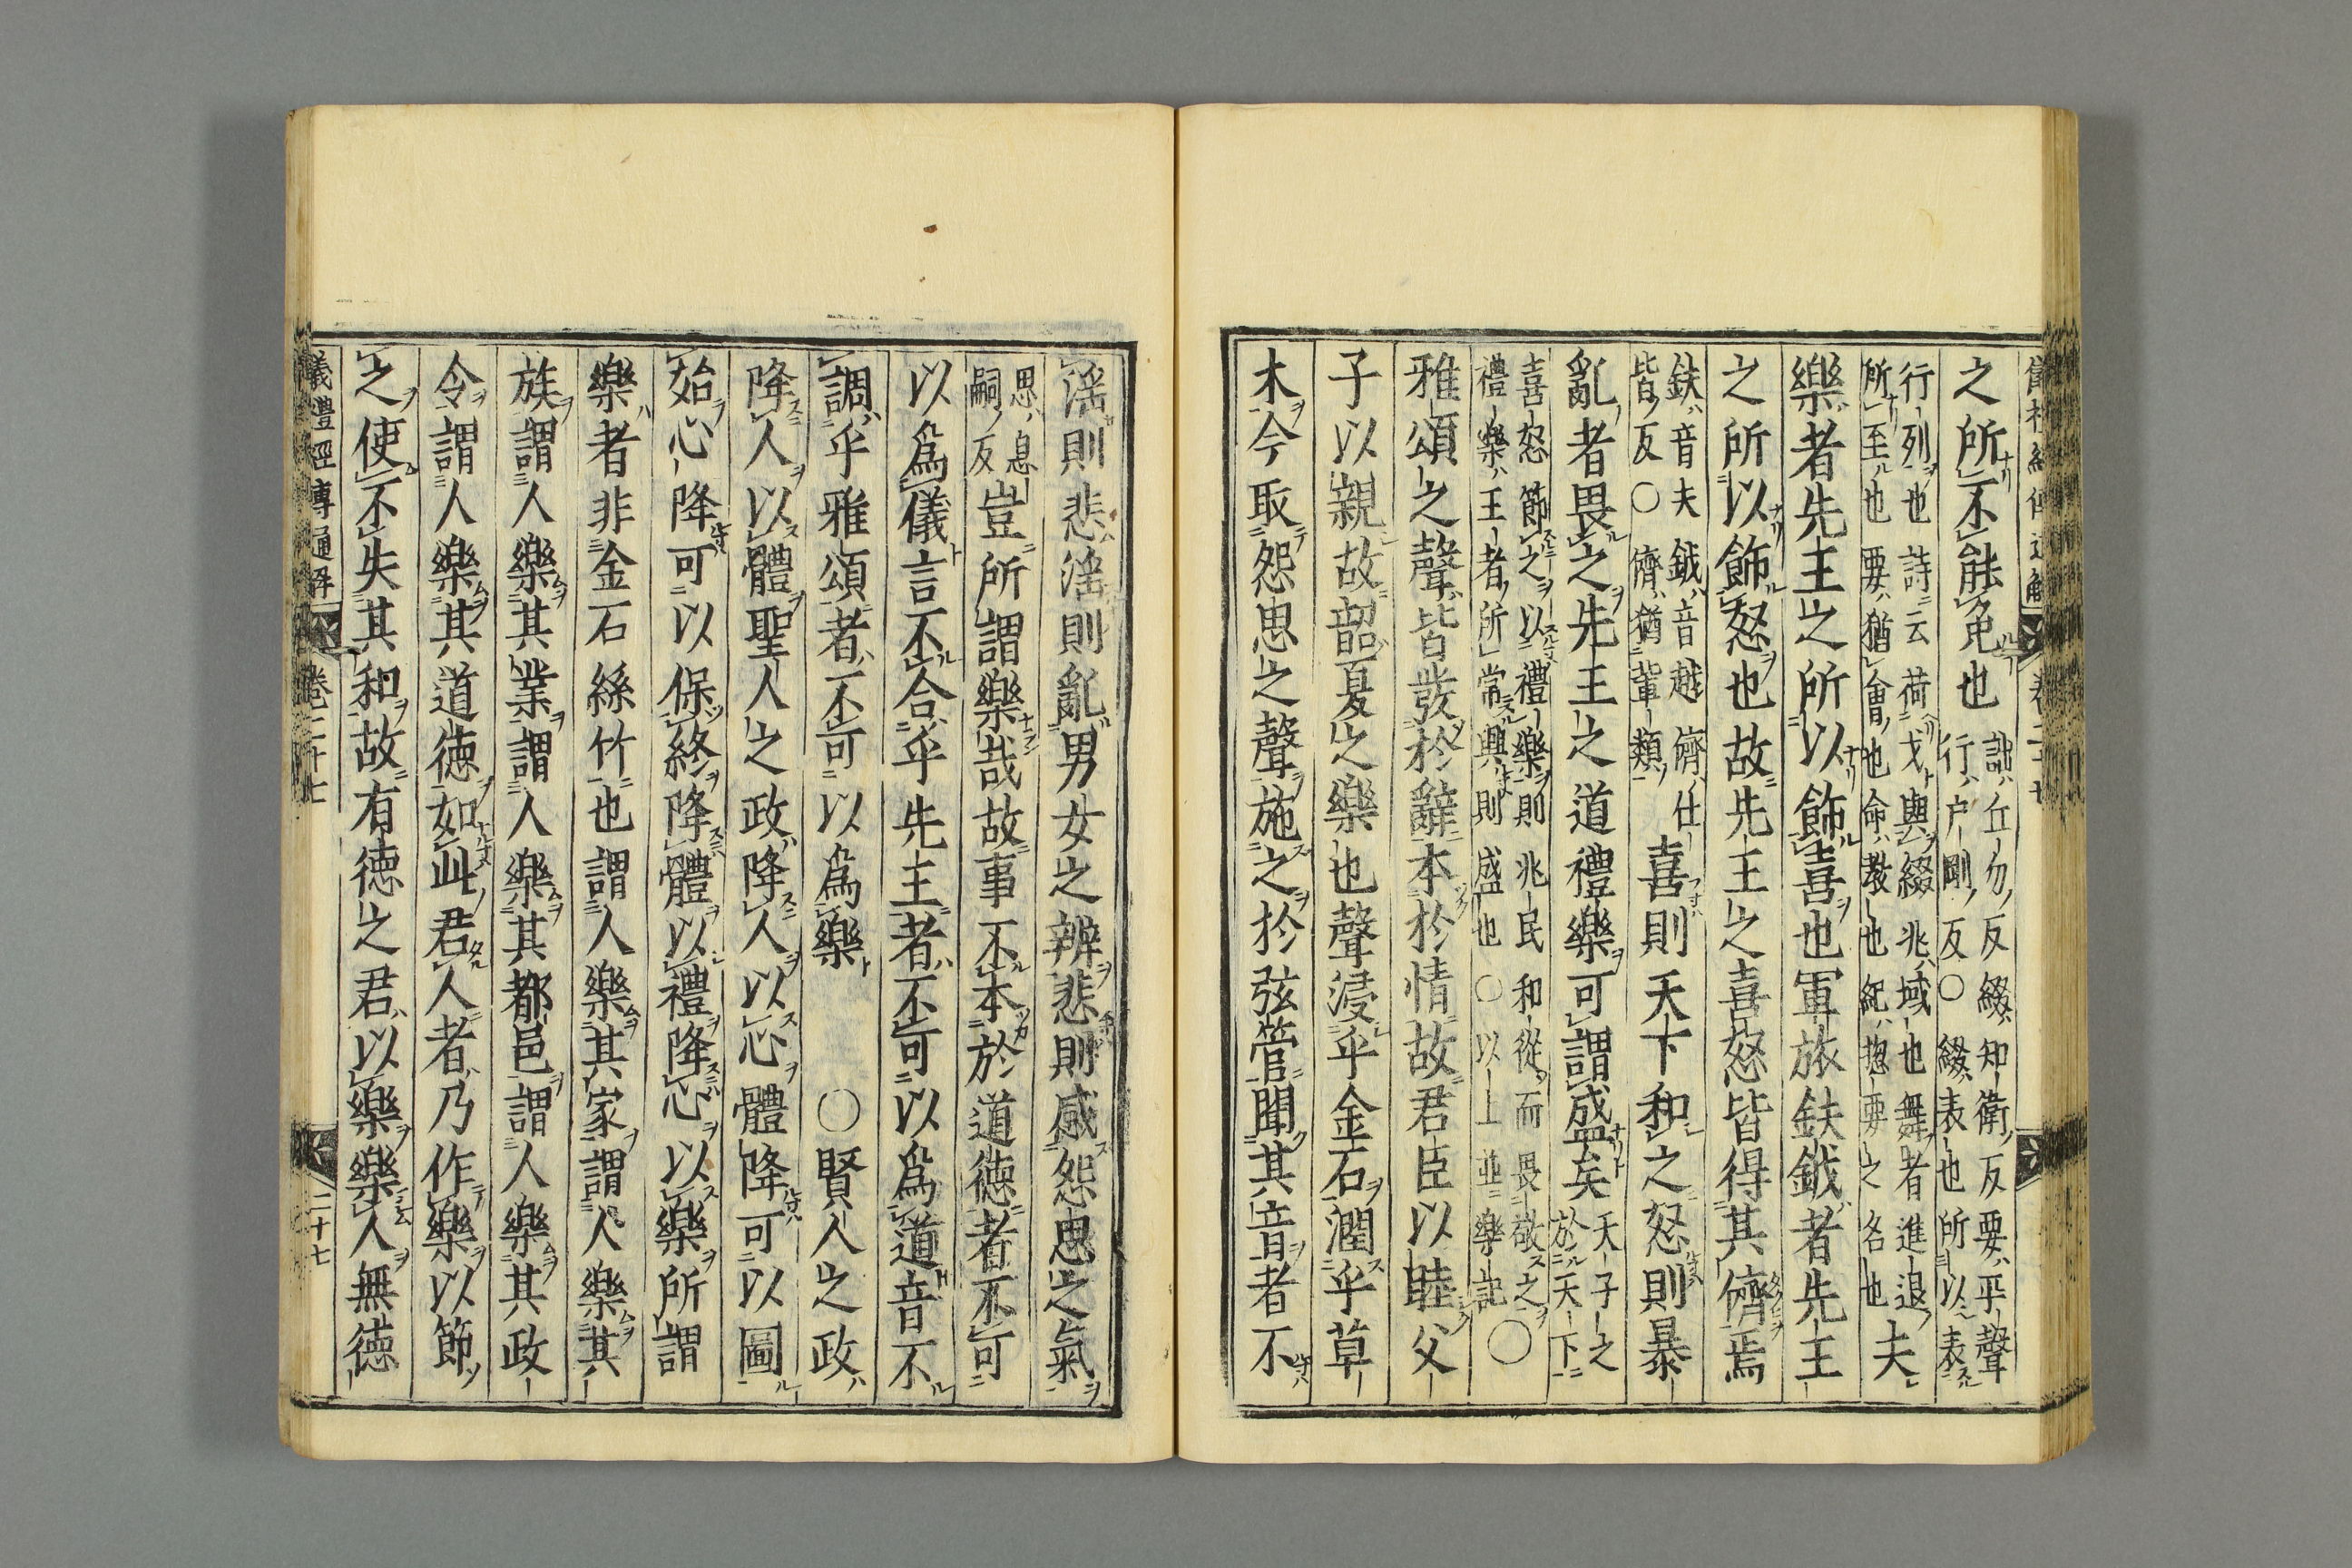 儀禮經傳通解 卷二十七
之所不能免也 詘丘勿反綴知衛反要平聲
行戶剛反○綴表也所以表
行列也詩云荷戈與綴兆域也舞者進退
所至也要猶會也命教也紀揔要之名也 夫
樂者先王之所以飾喜也軍旅鈇鉞者先王
之所以飾怒也故先王之喜怒皆得其儕焉
鈇音夫鉞音越儕仕
皆反○儕猶輩類 喜則天下和之怒則暴
亂者畏之先王之道禮樂可謂盛矣 天子之
於天下
喜怒節之以禮樂則兆民和從而畏敬之
禮樂王者所常興則盛也○以上並樂記 ○
雅頌之聲皆發於辭本於情故君臣以睦父
子以親故韶夏之樂也聲浸乎金石潤乎草
木今取怨思之聲施之於弦管聞其音者不
淫則悲淫則亂男女之辨悲則感怨思之氣
思息
嗣反 豈所謂樂哉故事不本於道德者不可
以為儀言不合乎先王者不可以為道音不
調乎雅頌者不可以為樂 ○賢人之政
降人以體聖人之政降人以心體降可以圖
始心降可以保終降體以禮降心以樂所謂
樂者非金石絲竹也謂人樂其家謂人樂其
族謂人樂其業謂人樂其都邑謂人樂其政
令謂人樂其道德如此君人者乃作樂以節
之使不失其和故有德之君以樂樂人無德
儀禮經傳通解 卷二十七 二十七